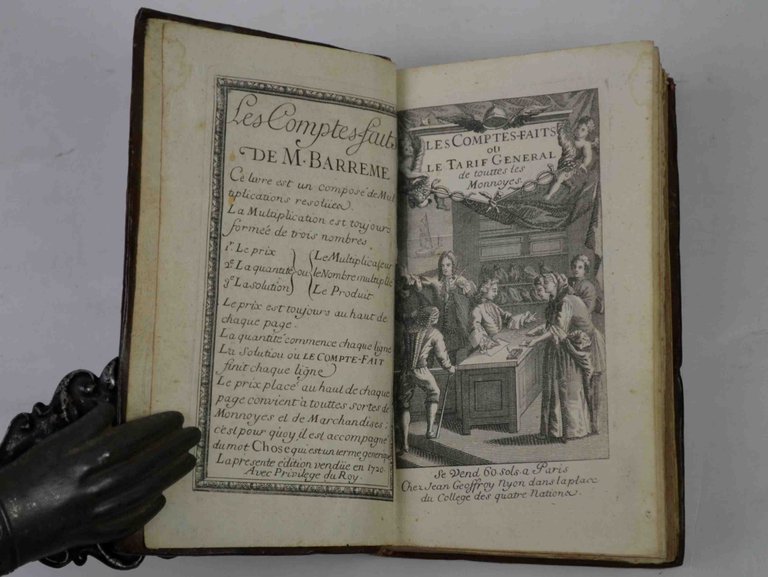 Les Comptes-faits
DE M. BARREME
Ce livre est un composé de Mul
tiplications resolües.
La Multiplication est toujours
formée de trois nombres
1.º Le prix
2.º La quantité
3.º La solution
ou
Le Multiplicateur
le Nombre multiplié
Le Produit
Le prix est toujours au haut de
chaque page.
La quantité commence chaque ligne
La Solution ou LE COMPTE-FAIT
finit chaque ligne
Le prix placé au haut de chaque
page convient a touttes sortes de
Monnoyes et de Marchandises:
c'est pour quoy il est accompagné
du mot Chose qui est un terme generique
La presente edition vendüe en 1720.
Avec Privilege du Roy.
LES COMPTES-FAITS
OU
LE TARIF GENERAL
de touttes les
Monnoyes.
Se Vend 60 sols a Paris
Chez Jean Geoffroy Nyon dans la place
du College des quatre Nations.